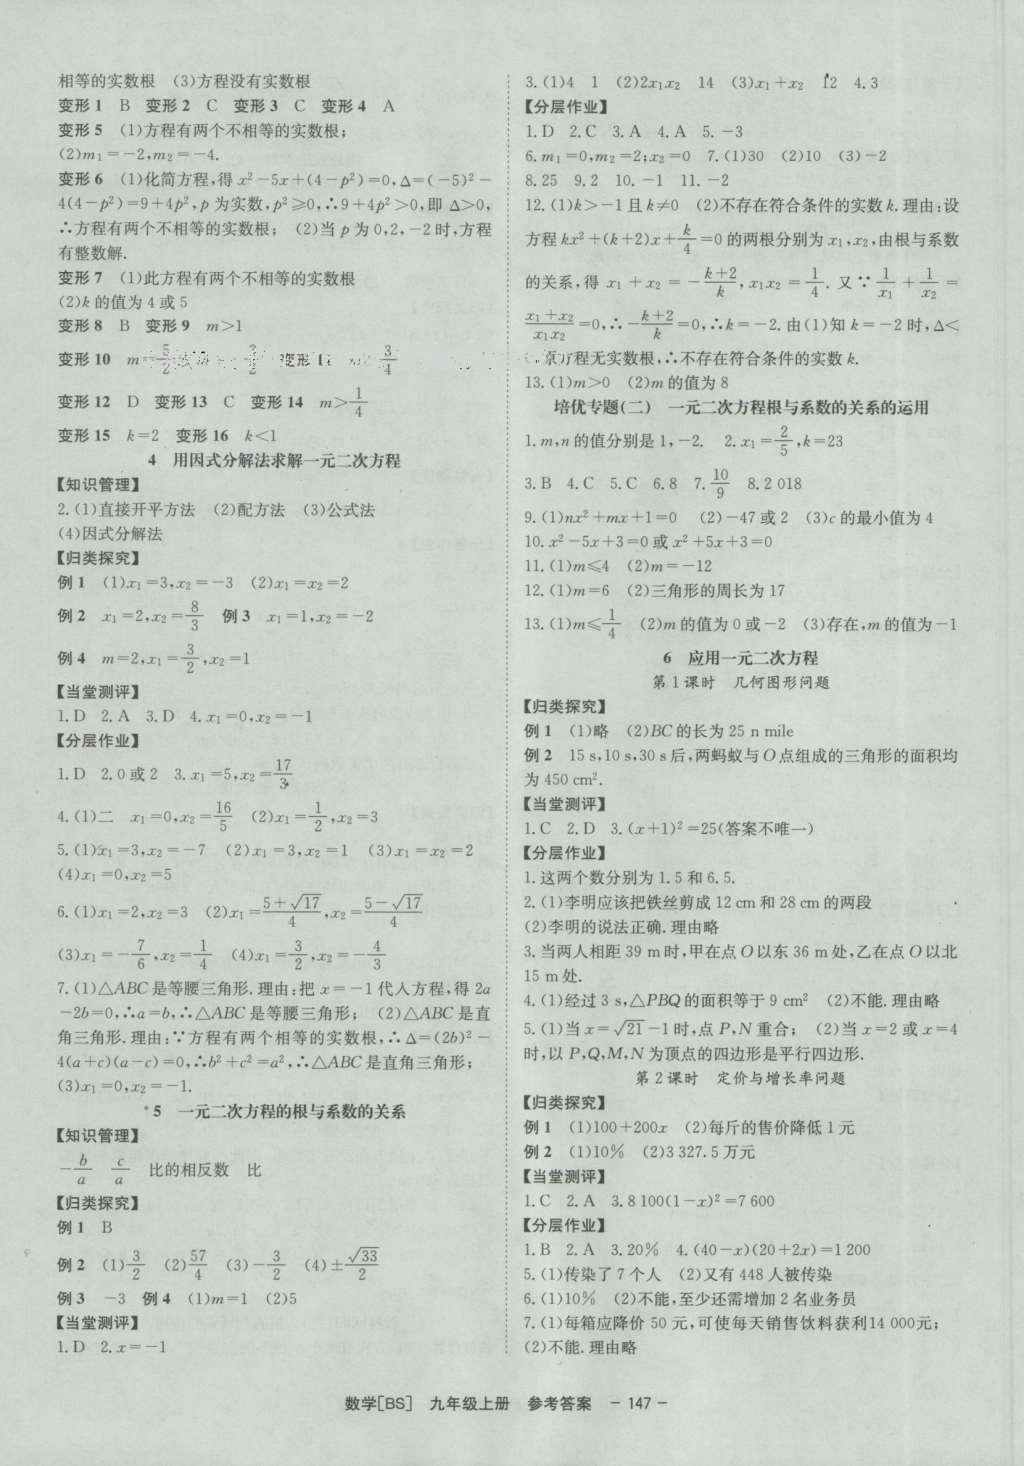 相等的实数根　(3)方程没有实数根
变形1　B　变形2　C　变形3　C　变形4　A
变形5　(1)方程有两个不相等的实数根;
(2)m₁=-2,m₂=-4.
变形6　(1)化简方程,得 x²-5x+(4-p²)=0,Δ=(-5)²-
4(4-p²)=9+4p²,p为实数,p²≥0,∴9+4p²>0,即Δ>0,
∴方程有两个不相等的实数根;　(2)当p为0,2,-2时,方程
有整数解.
变形7　(1)此方程有两个不相等的实数根
(2)k的值为4或5
变形8　B　变形9　m>1
变形10　m=5/2　3/2　变形11　3/4
变形12　D　变形13　C　变形14　m>1/4
变形15　k=2　变形16　k<1
4　用因式分解法求解一元二次方程
【知识管理】
2.(1)直接开平方法　(2)配方法　(3)公式法
(4)因式分解法
【归类探究】
例1　(1)x₁=3,x₂=-3　(2)x₁=x₂=2
例2　x₁=2,x₂=8/3　例3　x₁=1,x₂=-2
例4　m=2,x₁=3/2,x₂=1
【当堂测评】
1.D　2.A　3.D　4.x₁=0,x₂=-1
【分层作业】
1.D　2.0或2　3.x₁=5,x₂=17/3
4.(1)二　x₁=0,x₂=16/5　(2)x₁=1/2,x₂=3
5.(1)x₁=3,x₂=-7　(2)x₁=3,x₂=1　(3)x₁=x₂=2
(4)x₁=0,x₂=5
6.(1)x₁=2,x₂=3　(2)x₁=(5+√17)/4,x₂=(5-√17)/4
(3)x₁=-7/6,x₂=1/4　(4)x₁=3/2,x₂=-4/3
7.(1)△ABC是等腰三角形.理由:把x=-1代入方程,得2a
-2b=0,∴a=b,∴△ABC是等腰三角形;　(2)△ABC是直
角三角形.理由:∵方程有两个相等的实数根,∴Δ=(2b)²-
4(a+c)(a-c)=0,∴b²+c²=a²,∴△ABC是直角三角形;
(3)x₁=0,x₂=-1.
*5　一元二次方程的根与系数的关系
【知识管理】
-b/a　c/a　比的相反数　比
【归类探究】
例1　B
例2　(1)3/2　(2)57/4　(3)-3/2　(4)±√33/2
例3　-3　例4　(1)m=1　(2)5
【当堂测评】
1.D　2.x=-1
3.(1)4　1　(2)2x₁x₂　14　(3)x₁+x₂　12　4.3
【分层作业】
1.D　2.C　3.A　4.A　5.-3
6.m₁=0,m₂=2;x₂=0　7.(1)30　(2)10　(3)-2
8.25　9.2　10.-1　11.-2
12.(1)k>-1且k≠0　(2)不存在符合条件的实数k.理由:设
方程kx²+(k+2)x+k/4=0的两根分别为x₁,x₂,由根与系数
的关系,得 x₁+x₂=-(k+2)/k,x₁x₂=1/4.又∵1/x₁+1/x₂=
(x₁+x₂)/(x₁x₂)=0,∴-(k+2)/k=0,∴k=-2.由(1)知k=-2时,Δ<
原方程无实数根,∴不存在符合条件的实数k.
13.(1)m>0　(2)m的值为8
培优专题(二)　一元二次方程根与系数的关系的运用
1.m,n的值分别是1,-2.　2.x₁=2/5,k=23
3.B　4.C　5.C　6.8　7.10/9　8.2 018
9.(1)nx²+mx+1=0　(2)-47或2　(3)c的最小值为4
10.x²-5x+3=0或x²+5x+3=0
11.(1)m≤4　(2)m=-12
12.(1)m=6　(2)三角形的周长为17
13.(1)m≤1/4　(2)m的值为0或-2　(3)存在,m的值为-1
6　应用一元二次方程
第1课时　几何图形问题
【归类探究】
例1　(1)略　(2)BC的长为25 n mile
例2　15 s,10 s,30 s后,两蚂蚁与O点组成的三角形的面积均
为450 cm².
【当堂测评】
1.C　2.D　3.(x+1)²=25(答案不唯一)
【分层作业】
1.这两个数分别为1.5和6.5.
2.(1)李明应该把铁丝剪成12 cm和28 cm的两段
(2)李明的说法正确.理由略
3.当两人相距39 m时,甲在点O以东36 m处,乙在点O以北
15 m处.
4.(1)经过3 s,△PBQ的面积等于9 cm²　(2)不能.理由略
5.(1)当x=√21-1时,点P,N重合;　(2)当x=2或x=4
时,以P,Q,M,N为顶点的四边形是平行四边形.
第2课时　定价与增长率问题
【归类探究】
例1　(1)100+200x　(2)每斤的售价降低1元
例2　(1)10%　(2)3 327.5万元
【当堂测评】
1.C　2.A　3.8 100(1-x)²=7 600
【分层作业】
1.B　2.A　3.20%　4.(40-x)(20+2x)=1 200
5.(1)传染了7个人　(2)又有448人被传染
6.(1)10%　(2)不能,至少还需增加2名业务员
7.(1)每箱应降价50元,可使每天销售饮料获利14 000元;
(2)不能.理由略
数学[BS]　九年级上册　参考答案　-147-